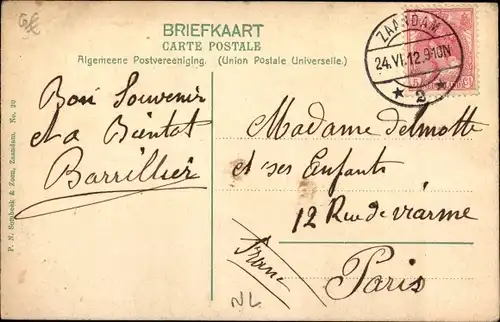 BRIEFKAART
CARTE POSTALE
Algemeene Postvereeniging. (Union Postale Universelle.)
ZAANDAM
24.VI.12.9-10N
2
Bon Souvenir
et a Bientot
Barrillier
Madame Delmotte
et ses Enfants
12 Rue de viarme
Paris
France
NL
P. N. Sombeek & Zoon, Zaandam. No. 20